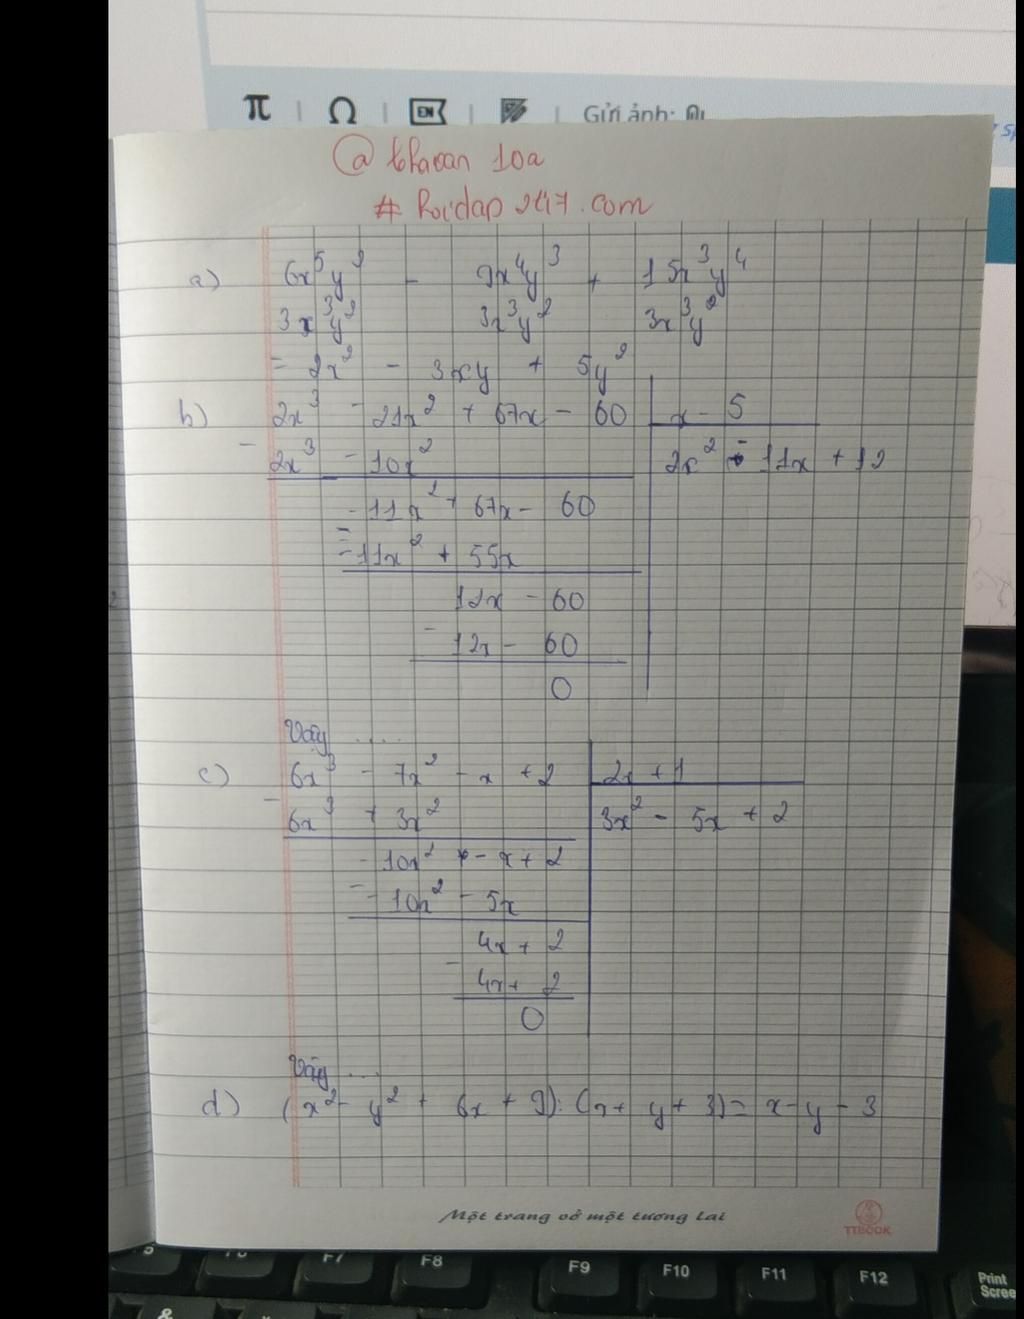 π | Ω | EN | | Gửi ảnh:
@ thaoan 10a
# Hoidap247.com
a) 6x⁵y² - 9x⁴y³ + 15x³y⁴
3x³y² 3x³y² 3x³y²
= 2x² - 3xy + 5y²
b) 2x³ - 21x² + 67x - 60 | x - 5
- 2x³ - 10x² 2x² - 11x + 12
- 11x² + 67x - 60
- -11x² + 55x
12x - 60
- 12x - 60
0
Vậy ....
c) 6x³ - 7x² - x + 2 | 2x + 1
- 6x³ + 3x² 3x² - 5x + 2
- 10x² - x + 2
- -10x² - 5x
4x + 2
- 4x + 2
0
Vậy ...
d) (x² - y² + 6x + 9) : (x + y + 3) = x - y - 3
Một trang vở một tương lai
TTBOOK
F7 F8 F9 F10 F11 F12 Print
Scree
&